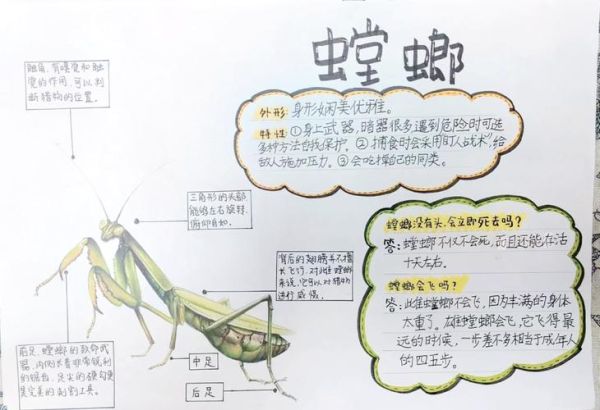 螳螂
外形:身形娴美优雅。
特性:①身上武器,暗器很多遇到危险时可选
多种方法自我保护。②捕食时会采用盯人战术,给
敌人施加压力。③会吃掉自己的同类。
触角,有嗅觉和触
觉的作用,可以判
断猎物的位置。
三角形的头部,
能够左右旋转,
俯仰自如。
背后的翅膀并不擅
长飞行,对雌螳螂
来说,它可以对猎物
进行威慑。
前足,螳螂的致命武
器,内侧长着非常锐利
的锯齿,足尖的硬勾更
是完美的切割工具。
中足
后足
螳螂没有头,会立即死去吗?
答:螳螂不仅不会死,而且还能在活
十天左右。
螳螂会飞吗?
答:雌螳螂不会飞,因为丰满的身体
太重了。雄螳螂会飞,它飞得最
远的时候,一步差不多相当于成年人
的四五步。